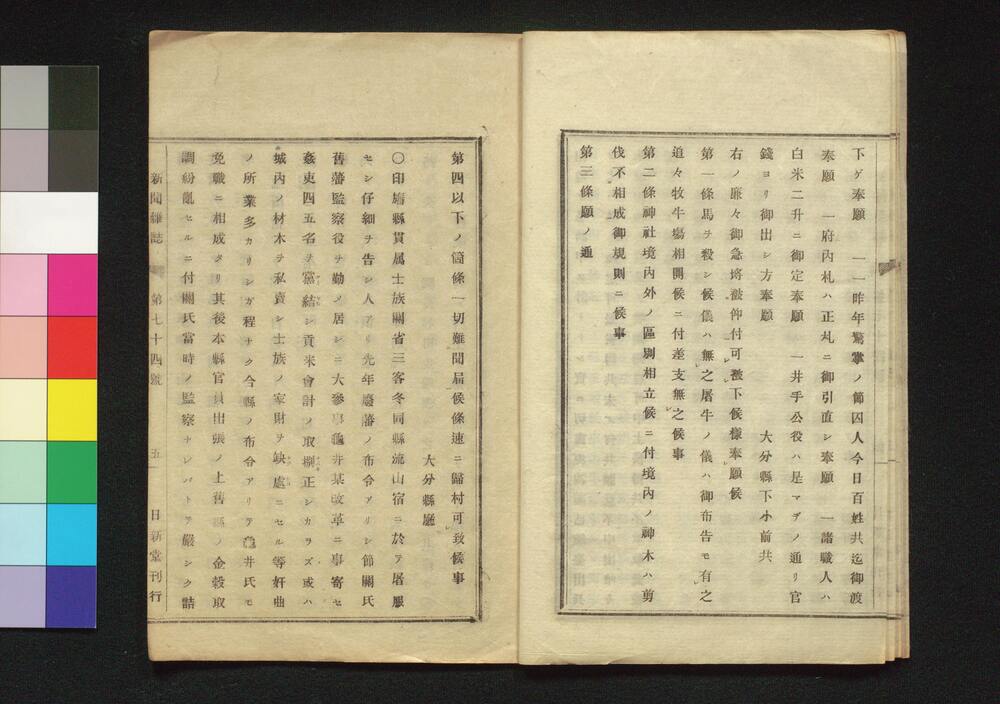 下ゲ奉願 一一昨年騒擾ノ節囚人今日百姓共迄御渡
奉願 一府內札ハ正札ニ御引直シ奉願 一諸職人ハ
白米二升ニ御定奉願 一井手公役ハ是マデノ通リ官
錢ヨリ御出シ方奉願 大分縣下小前共
右ノ廉々御急埓被仰付可被下候樣奉願候
第一條馬ヲ殺シ候儀ハ無之屠牛ノ儀ハ御布告モ有之
追々牧牛塲相開候ニ付差支無之候事
第二條神社境內外ノ區別相立候ニ付境內ノ神木ハ剪
伐不相成御規則ニ候事
第三條願ノ通
第四以下ノ箇條一切難聞届候條速ニ歸村可致候事
大分縣廳
〇印旛縣貫属士族關省三客冬同縣流山宿ニ於テ屠服
セシ仔細ヲ告シ人アリ先年廢藩ノ布令アリシ節關氏
舊藩監察役ヲ勤メ居シニ大參事龜井某改革ニ事寄セ
姦吏四五名ヲ黨結シ貢米會計ノ取捌正シカラズ或ハ
城內ノ材木ヲ私賣シ士族ノ家財ヲ缺處ニセル等奸曲
ノ所業多カリシガ程ナク今縣ノ布令アリテ龜井氏モ
免職ニ相成タリ其後本縣官員出張ノ上舊縣ノ金穀取
調紛亂セルニ付關氏當時ノ監察ナレバトテ嚴シク詰
新聞雜誌 第七十四號 五 日新堂刊行